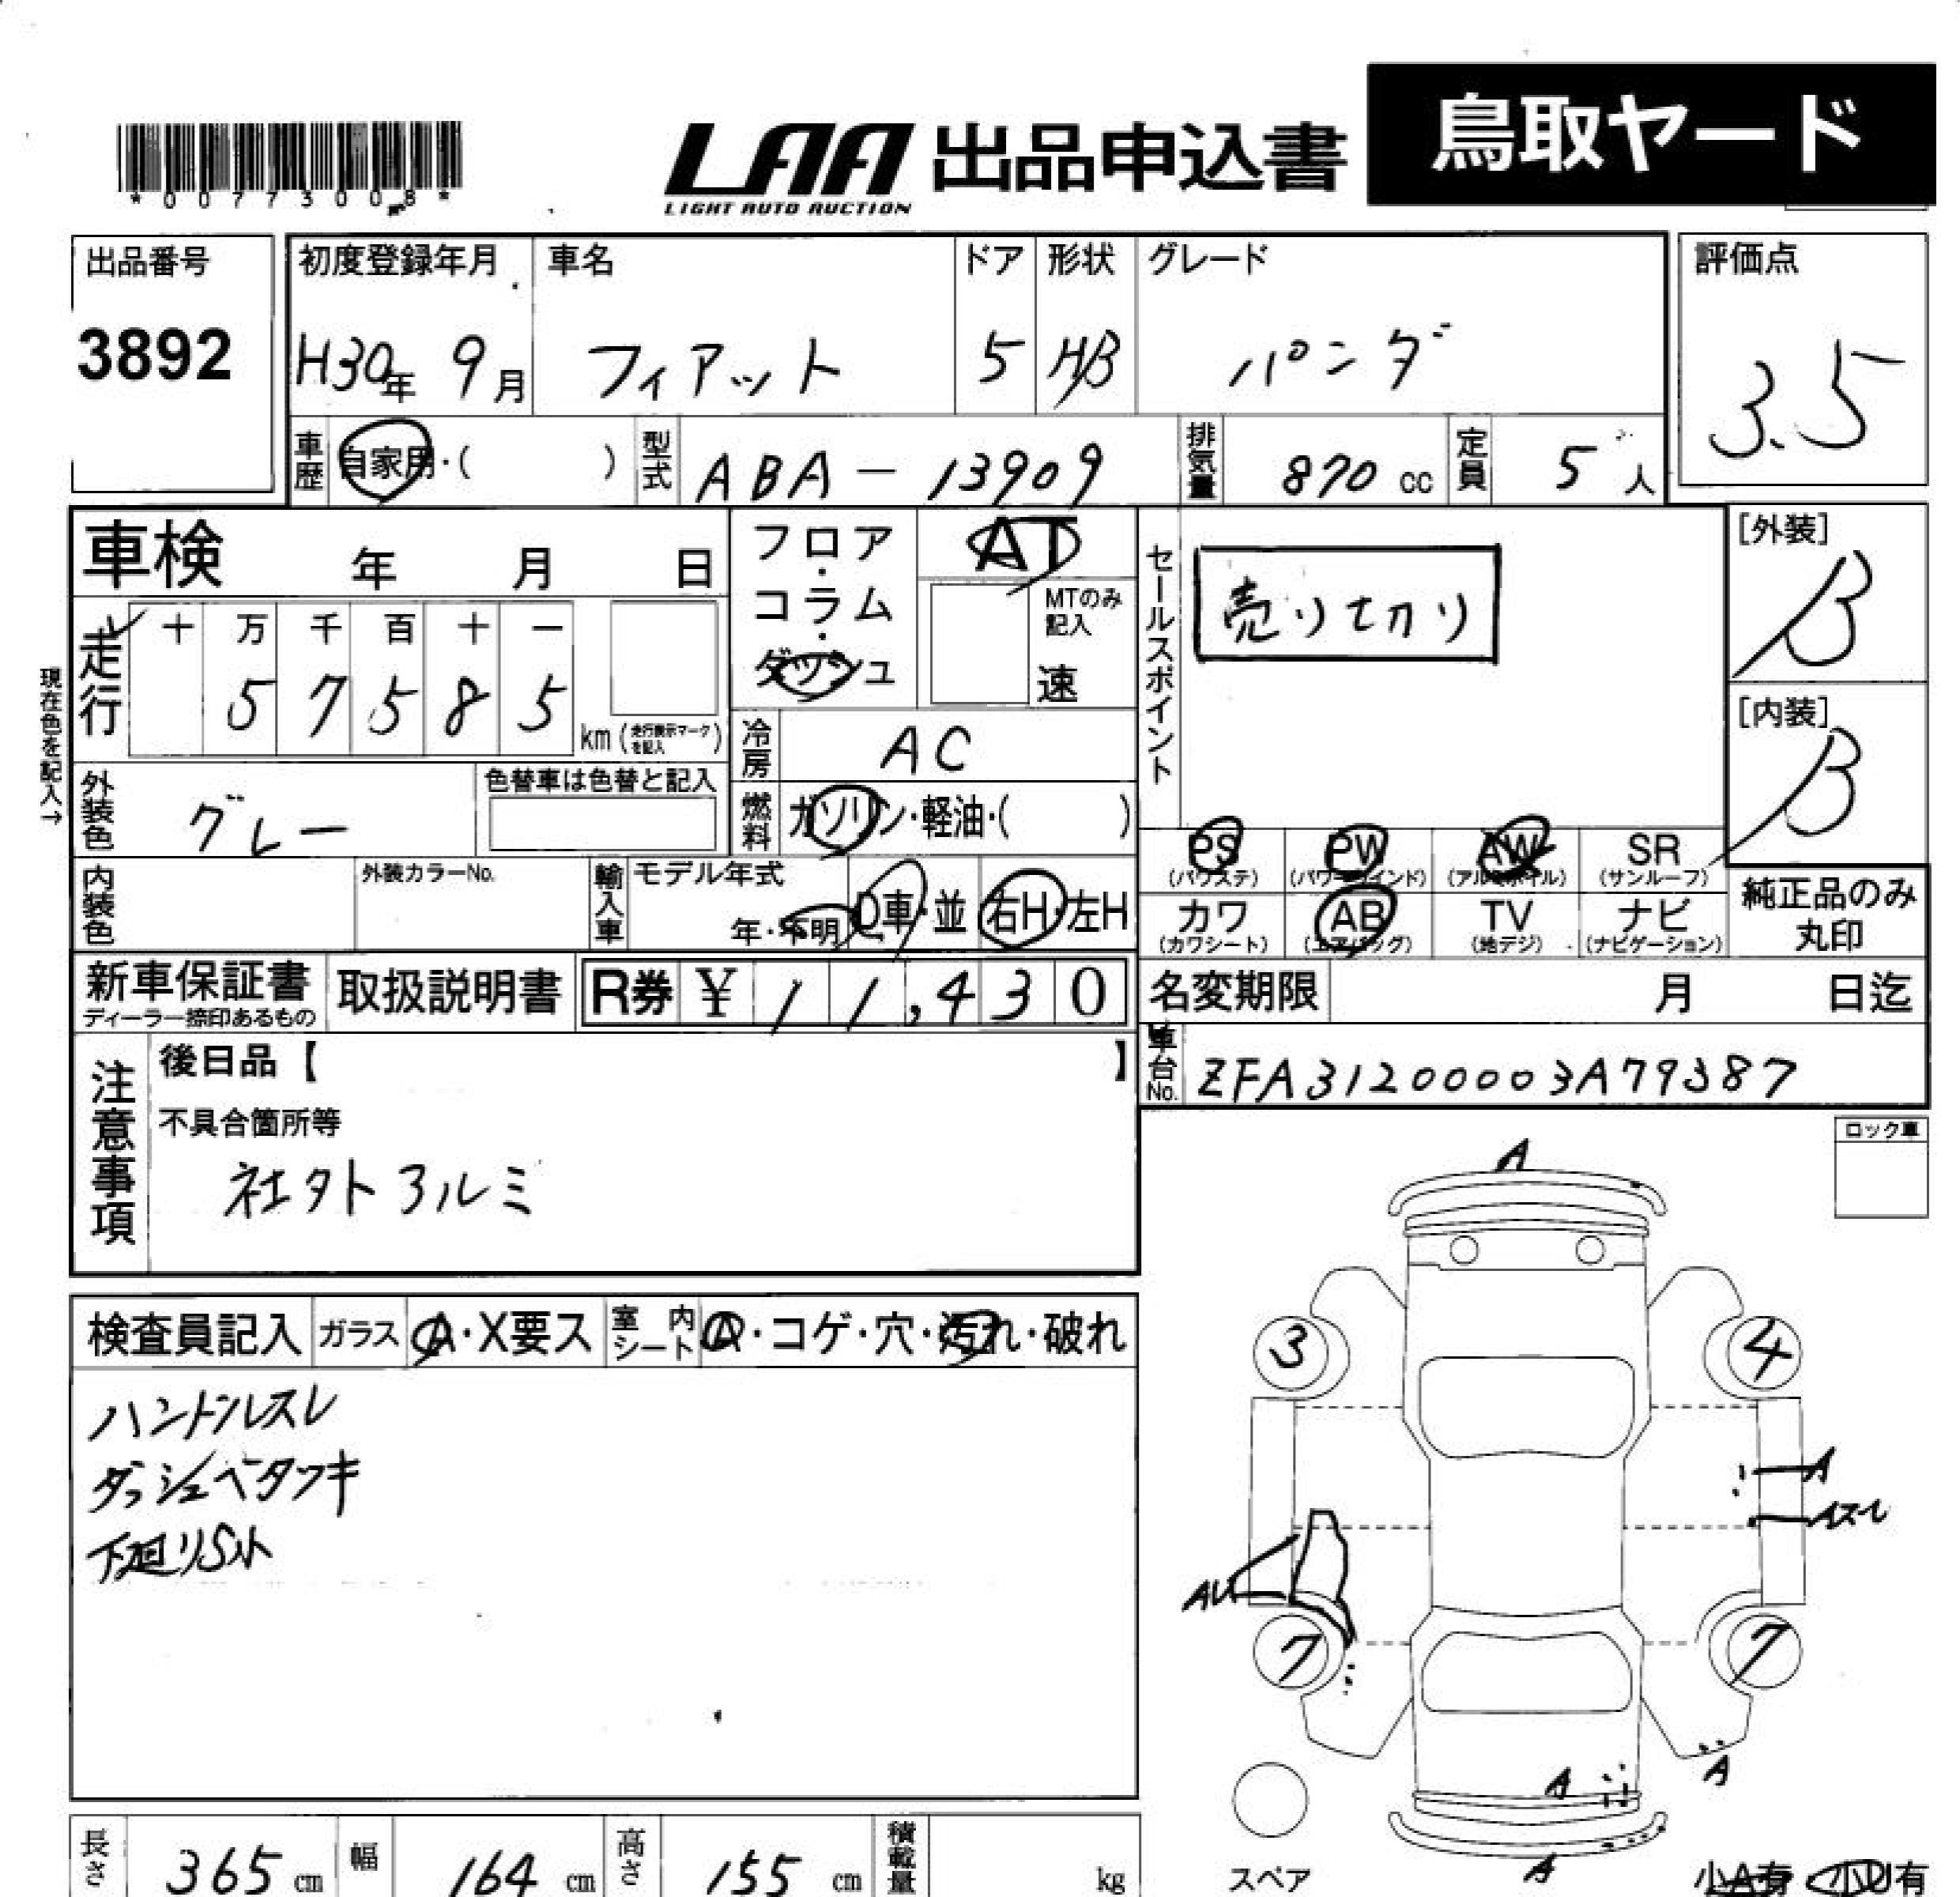 *00773008*
LAA 出品申込書 鳥取ヤード
LIGHT AUTO AUCTION
出品番号 初度登録年月 車名 ドア 形状 グレード 評価点
3892 H30年 9月 フィアット 5 HB パンダ 3.5
車歴 自家用・( ) 型式 ABA-13909 排気量 870 cc 定員 5 人
車検 年 月 日 フロア・コラム・ダッシュ AT セールスポイント 売り切り [外装] B
MTのみ記入 速
走行 十 万 千 百 十 一
5 7 5 8 5 km (走行表示マークを記入)
現在色を記入→
[内装] B
冷房 AC
外装色 グレー 色替車は色替と記入 燃料 ガソリン・軽油・( )
PS AW PW SR
(パワステ) (パワーウインド) (アルミホイル) (サンルーフ)
内装色 外装カラーNo. 輸入車 モデル年式 年・不明 D車・並 右H・左H
カワ AB TV ナビ 純正品のみ丸印
(カワシート) (エアバッグ) (地デジ) (ナビゲーション)
新車保証書 取扱説明書 R券 ¥ 11,430 名変期限 月 日迄
ディーラー捺印あるもの
注意事項 後日品【 】 車台No. ZFA31200003A79387
不具合箇所等
社外アルミ
ロック車
検査員記入 ガラス A・X要ス 室内シート A・コゲ・穴・汚れ・破れ
ハンドルスレ
ダッシュベタツキ
下廻りS小
A
3 4
A
Aスレ
AU
7 7
A A
A
スペア 小A有 小U有
長さ 365 cm 幅 164 cm 高さ 155 cm 積載量 kg